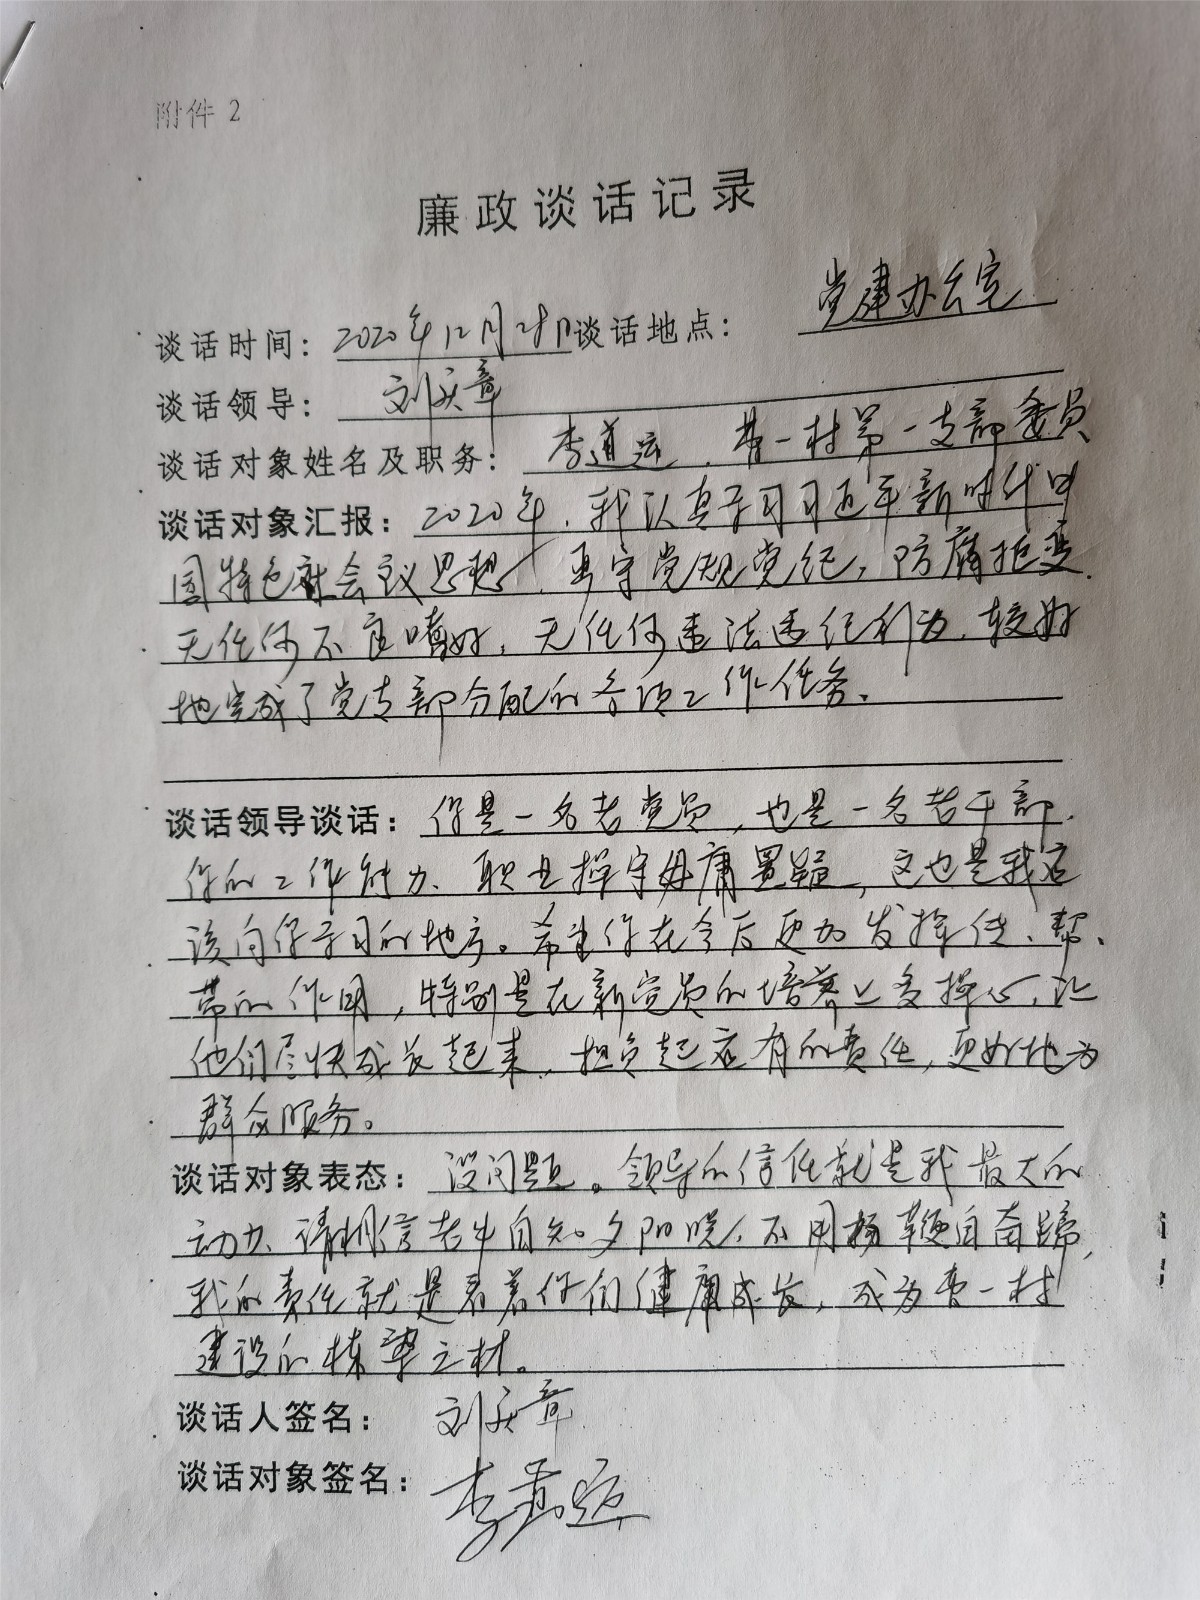 附件 2
廉政谈话记录
党建办公室
谈话时间：2020年12月28日谈话地点：
谈话领导：刘庆章
谈话对象姓名及职务：李道远，曹一村第一支部委员
谈话对象汇报：2020年，我认真学习习近平新时代中
国特色社会主义思想，再守党规党纪，防腐拒变，
无任何不良嗜好，无任何违法违纪行为，较好
地完成了党支部分配的各项工作任务。
谈话领导谈话：你是一名老党员，也是一名老干部，
你的工作能力、职业操守毋庸置疑，这也是我应
该向你学习的地方。希望你在今后更加发挥传、帮、
带的作用，特别是在新党员的培养上多操心，让
他们尽快成长起来，担负起应有的责任，更好地为
群众服务。
谈话对象表态：没问题。领导的信任就是我最大的
动力，请相信老牛自知夕阳晚，不用扬鞭自奋蹄，
我的责任就是看着你们健康成长，成为曹一村
建设的栋梁之材。
谈话人签名：刘庆章
谈话对象签名：李道远